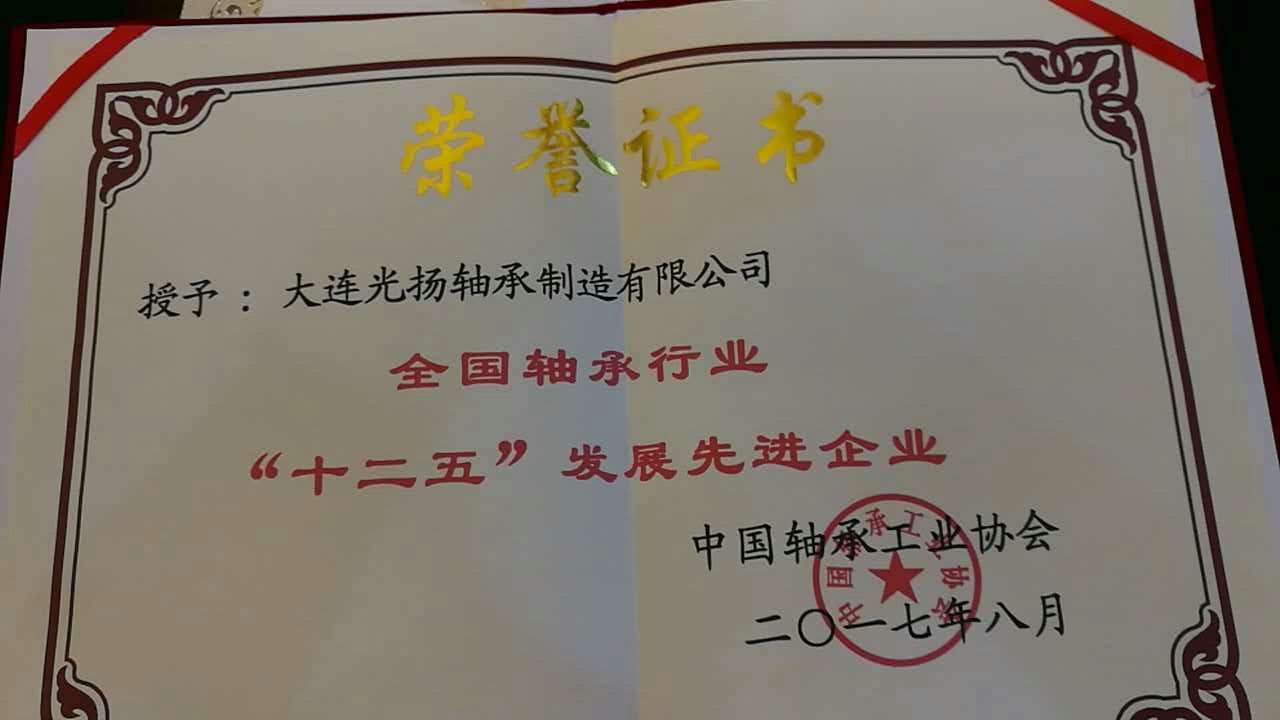 荣誉证书
授予：大连光扬轴承制造有限公司
全国轴承行业
“十二五”发展先进企业
中国轴承工业协会
二〇一七年八月
中国轴承工业协会